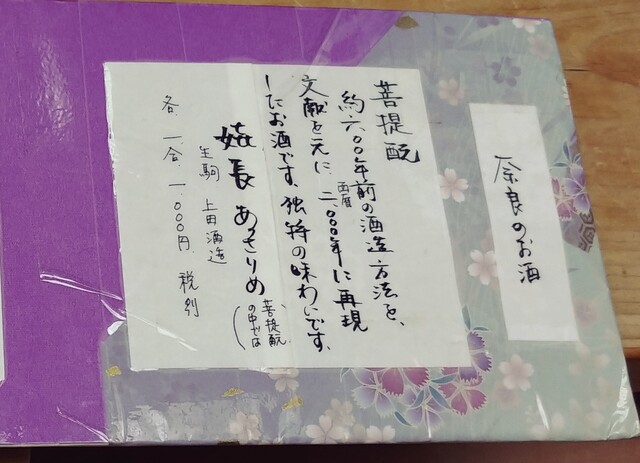 奈良のお酒
菩提酛
約六〇〇年前の酒造方法を、
文献を元に、西暦二、〇〇〇年に再現
したお酒です。独特の味わいです。
嬉長 あっさりめ
(菩提酛
の中では
生駒 上田酒造
各、一合、一、〇〇〇円、税別